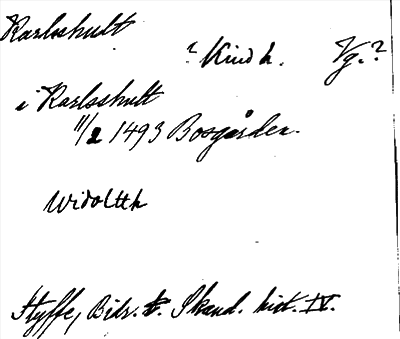 Karlshult
? Kind h. Vg.?
i Karlsshult
11/2 1493 Bosgården.
Widolth
Styffe, Bidr. t. Skand. hist. IV.